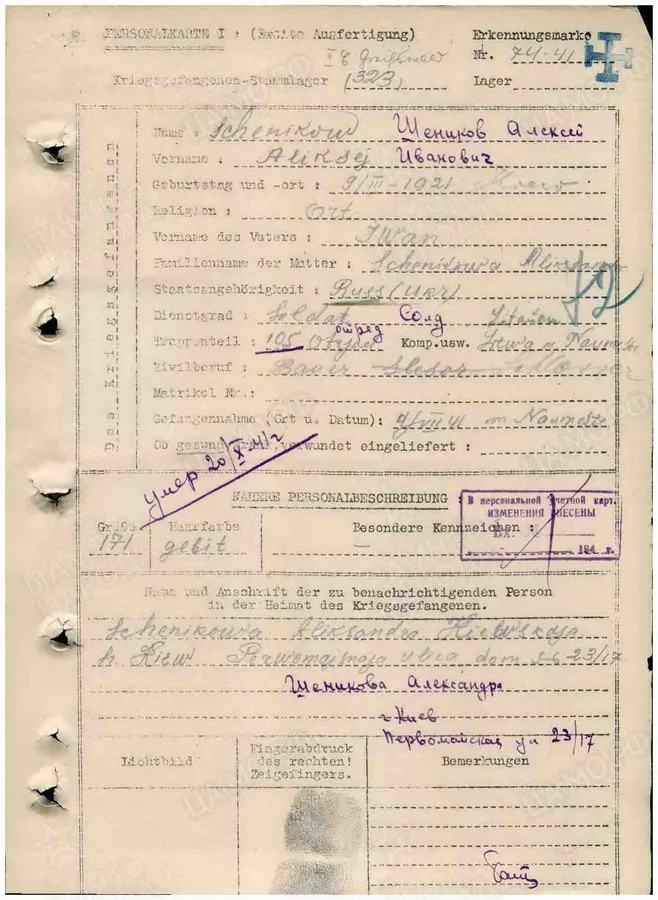 PERSONALKARTE I : (Zweite Ausfertigung) Erkennungsmarke
Nr. 74-41
Kriegsgefangenen-Stammlager (323) Lager
Des Kriegsgefangenen
Name : Schenikow Шеников Алексей
Vorname : Aliksej Иванович
Geburtstag und -ort : 9/III-1921
Religion : Ort.
Vorname des Vaters : Iwan
Familienname der Mutter : Schenikowa
Staatsangehörigkeit : Russ (Ukr)
72
Dienstgrad : Soldat Солд
отряд
Truppenteil : 105 Komp.usw.
Zivilberuf : Bauer
Matrikel Nr.:
Gefangennahme (Ort u. Datum):
Ob gesund, krank, verwundet eingeliefert :
умер 20/X 41 г
NÄHERE PERSONALBESCHREIBUNG :
В персональной учетной карт.
ИЗМЕНЕНИЯ ВНЕСЕНЫ
ВХ.
194 г.
Größe Haarfarbe Besondere Kennzeichen :
171
Name und Anschrift der zu benachrichtigenden Person
in der Heimat des Kriegsgefangenen.
Schenikowa Aliksandra Kiewskaja
Kiew Perwomajskaja dom 23/17
Шеникова Александра
г Киев
Первомайская ул 23/17
Lichtbild Fingerabdruck
des rechten!
Zeigefingers. Bemerkungen